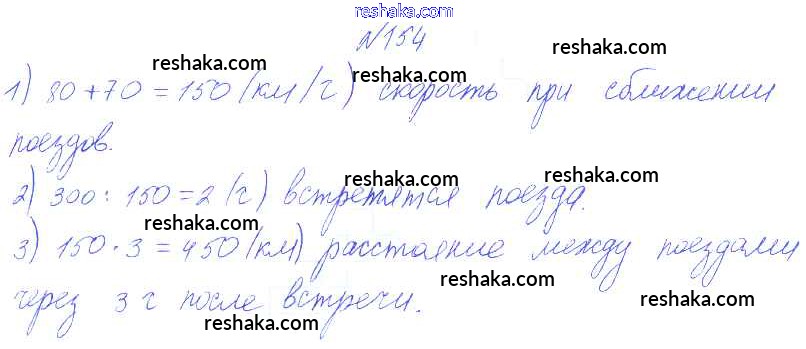 reshaka.com
reshaka.com
№154
reshaka.com reshaka.com
1) 80+70=150 (км/ч) скорость при сближении
reshaka.com reshaka.com
поездов.
reshaka.com
2) 300:150=2 (ч) встретятся поезда.
reshaka.com reshaka.com
3) 150·3=450 (км) расстояние между поездами
reshaka.com
через 3 ч после встречи.
reshaka.com reshaka.com